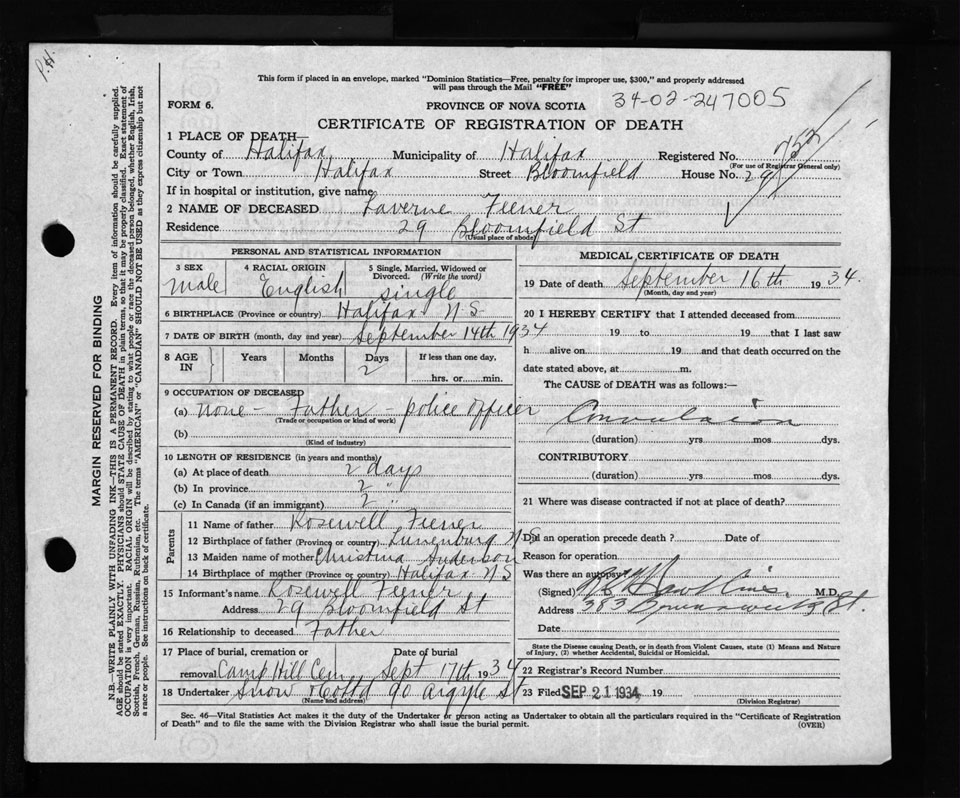 P.H.
This form if placed in an envelope, marked "Dominion Statistics—Free, penalty for improper use, $300," and properly addressed
will pass through the Mail "FREE"
FORM 6.
PROVINCE OF NOVA SCOTIA
34-02-247005
CERTIFICATE OF REGISTRATION OF DEATH
1 PLACE OF DEATH—
County of Halifax Municipality of Halifax Registered No.
(For use of Registrar General only)
City or Town Halifax Street Bloomfield House No. 29
If in hospital or institution, give name
2 NAME OF DECEASED Laverne Feener
Residence 29 Bloomfield St
(Usual place of abode)
PERSONAL AND STATISTICAL INFORMATION
3 SEX 4 RACIAL ORIGIN 5 Single, Married, Widowed or Divorced. (Write the word)
Male English single
6 BIRTHPLACE (Province or country) Halifax N S
7 DATE OF BIRTH (month, day and year) September 14th 1934
8 AGE IN Years Months Days If less than one day,
2
hrs. or min.
9 OCCUPATION OF DECEASED
(a) none - Father - police officer
(Trade or occupation or kind of work)
(b)
(Kind of industry)
10 LENGTH OF RESIDENCE (in years and months)
(a) At place of death 2 days
(b) In province 2 "
(c) In Canada (if an immigrant) 2 "
Parents
11 Name of father Rosewell Feener
12 Birthplace of father (Province or country) Lunenburg N S
13 Maiden name of mother Christina Anderson
14 Birthplace of mother (Province or country) Halifax N S
15 Informant's name Rosewell Feener
Address 29 Bloomfield St
16 Relationship to deceased Father
17 Place of burial, cremation or removal Date of burial
Camp Hill Cem Sept 17th 1934
18 Undertaker Snow & Co Ltd 90 Argyle St
(Name and address)
MEDICAL CERTIFICATE OF DEATH
19 Date of death September 16th 1934.
(Month, day and year)
20 I HEREBY CERTIFY that I attended deceased from
19 to 19 that I last saw
h alive on 19 and that death occurred on the
date stated above, at m.
The CAUSE of DEATH was as follows:—
Convulsion
(duration) yrs mos dys.
CONTRIBUTORY
(duration) yrs mos dys.
21 Where was disease contracted if not at place of death?
Did an operation precede death? Date of
Reason for operation
Was there an autopsy?
(Signed) M.D.
Address 383 Brunswick St.
Date
State the Disease causing Death, or in death from Violent Causes, state (1) Means and Nature
of Injury, (2) whether Accidental, Suicidal or Homicidal.
22 Registrar's Record Number
23 Filed SEP 21 1934 19
(Division Registrar)
Sec. 46—Vital Statistics Act makes it the duty of the Undertaker or person acting as Undertaker to obtain all the particulars required in the "Certificate of Registration
of Death" and to file the same with the Division Registrar who shall issue the burial permit.
(OVER)
MARGIN RESERVED FOR BINDING
N.B.—WRITE PLAINLY WITH UNFADING INK—THIS IS A PERMANENT RECORD. Every item of information should be carefully supplied.
AGE should be stated EXACTLY. PHYSICIANS should STATE CAUSE OF DEATH in plain terms, so that it may be properly classified. Exact statement of
OCCUPATION is very important. RACIAL ORIGIN will be described by stating to what people or race the deceased person belonged, whether English, Irish,
Scottish, French, German, Russian, Ruthenian, etc. The terms "AMERICAN" or "CANADIAN" SHOULD NOT BE USED as they express citizenship but not
a race or people. See instructions on back of certificate.